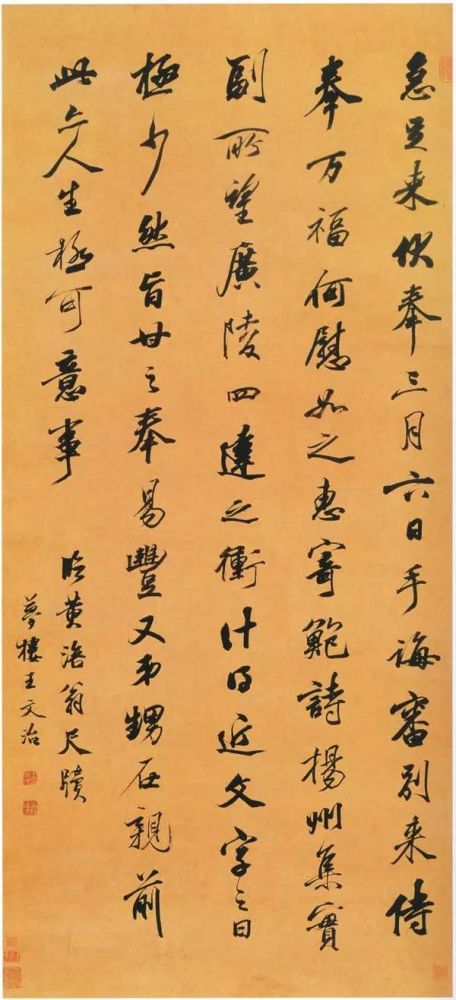 急足来伏奉三月六日手诲審别来侍
奉万福何慰如之惠寄鲍詩楊州集實
副所望廣陵四達之衝计日近文字之日
極少然旨甘之奉易豐又弟甥在親前
此亦人生極可意事
临黄涪翁尺牍
夢樓王文治